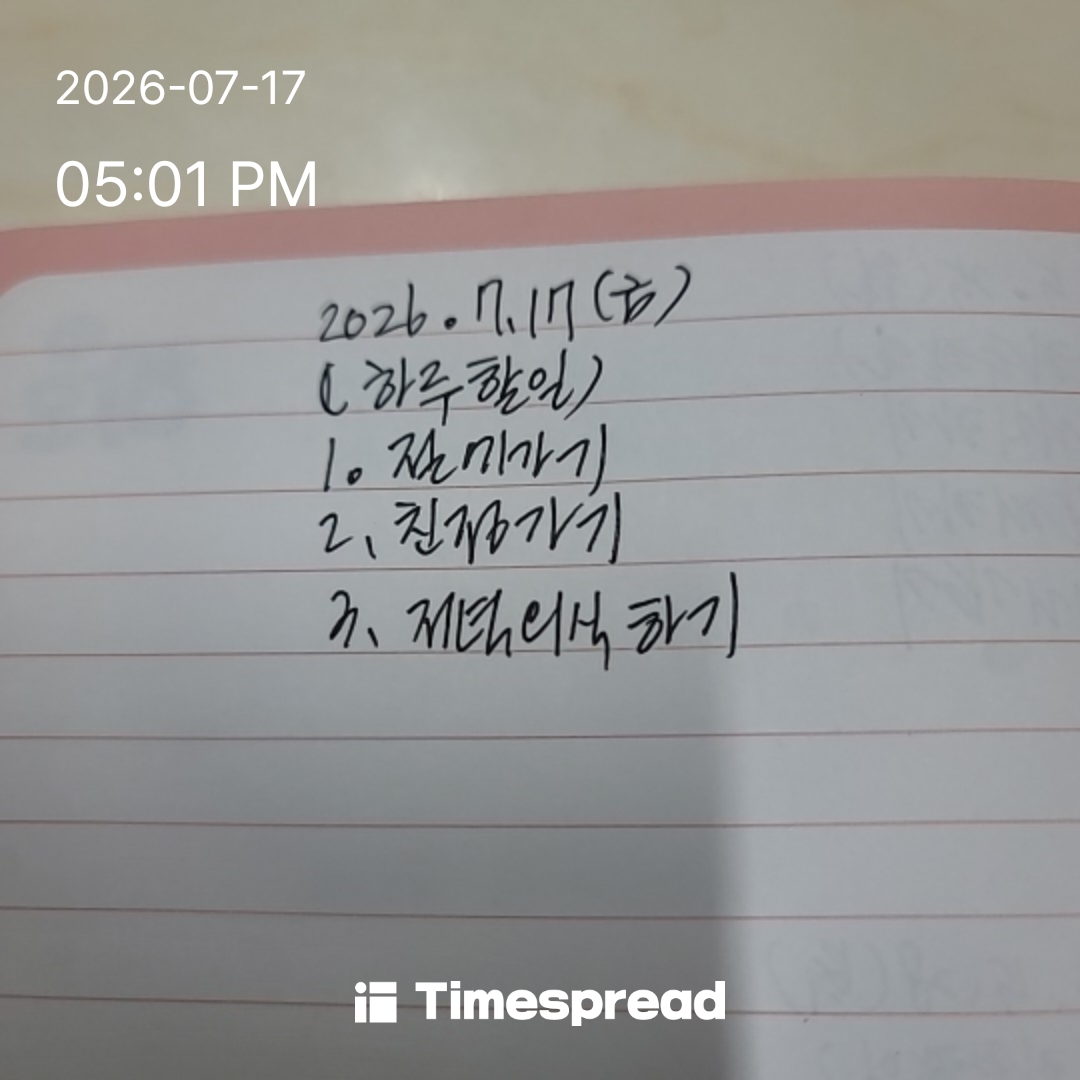 2026-07-17
05:01 PM
2026.7.17(금)
(하루할일)
1. 가기
2. 친정가기
3. 저녁외식하기
Timespread